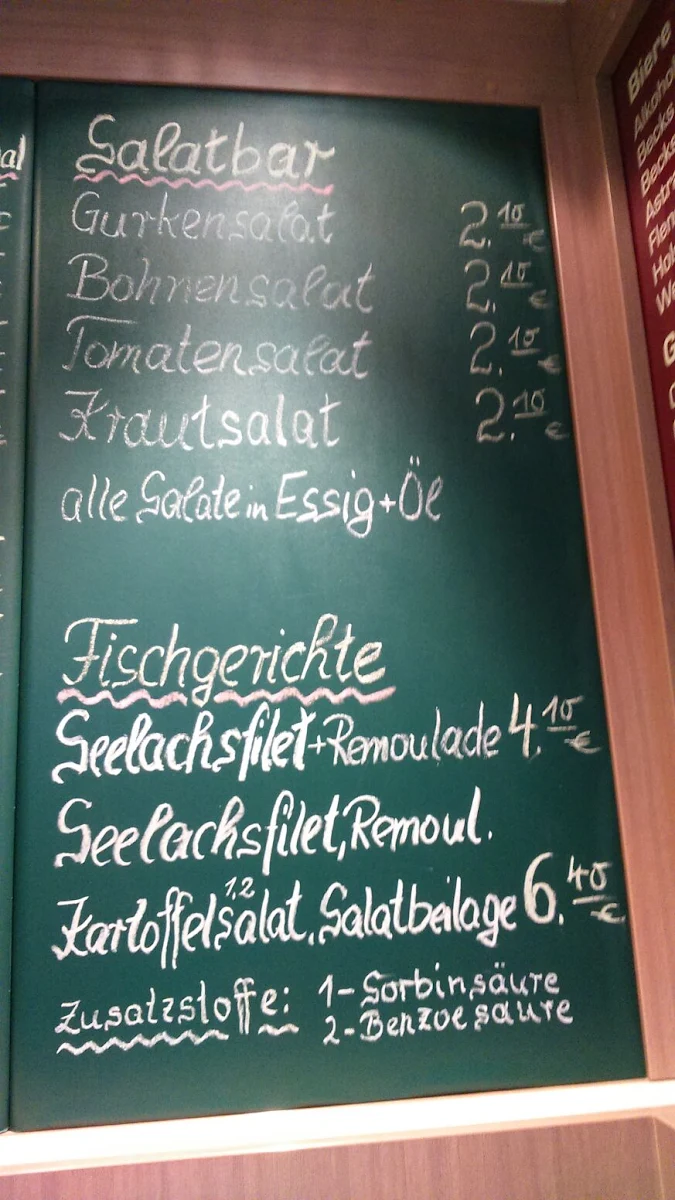 Salatbar
Gurkensalat 2.10 €
Bohnensalat 2.10 €
Tomatensalat 2.10 €
Krautsalat 2.10 €
alle Salate in Essig+Öl
Fischgerichte
Seelachsfilet+Remoulade 4.10 €
Seelachsfilet, Remoul.
Kartoffelsalat 1,2, Salatbeilage 6.40 €
Zusatzstoffe: 1-Sorbinsäure
2-Benzoesäure
Biere
Becks